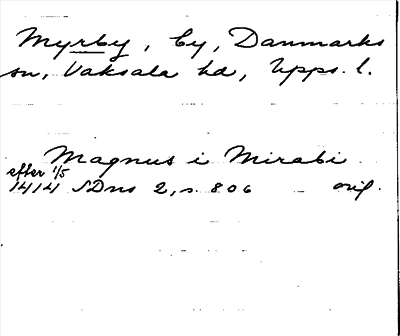 Myrby, by, Danmarks
sn, Vaksala hd, Upps. l.
Magnus i Mirabi
efter 1/5
1414 SDns 2, s. 806 orig.